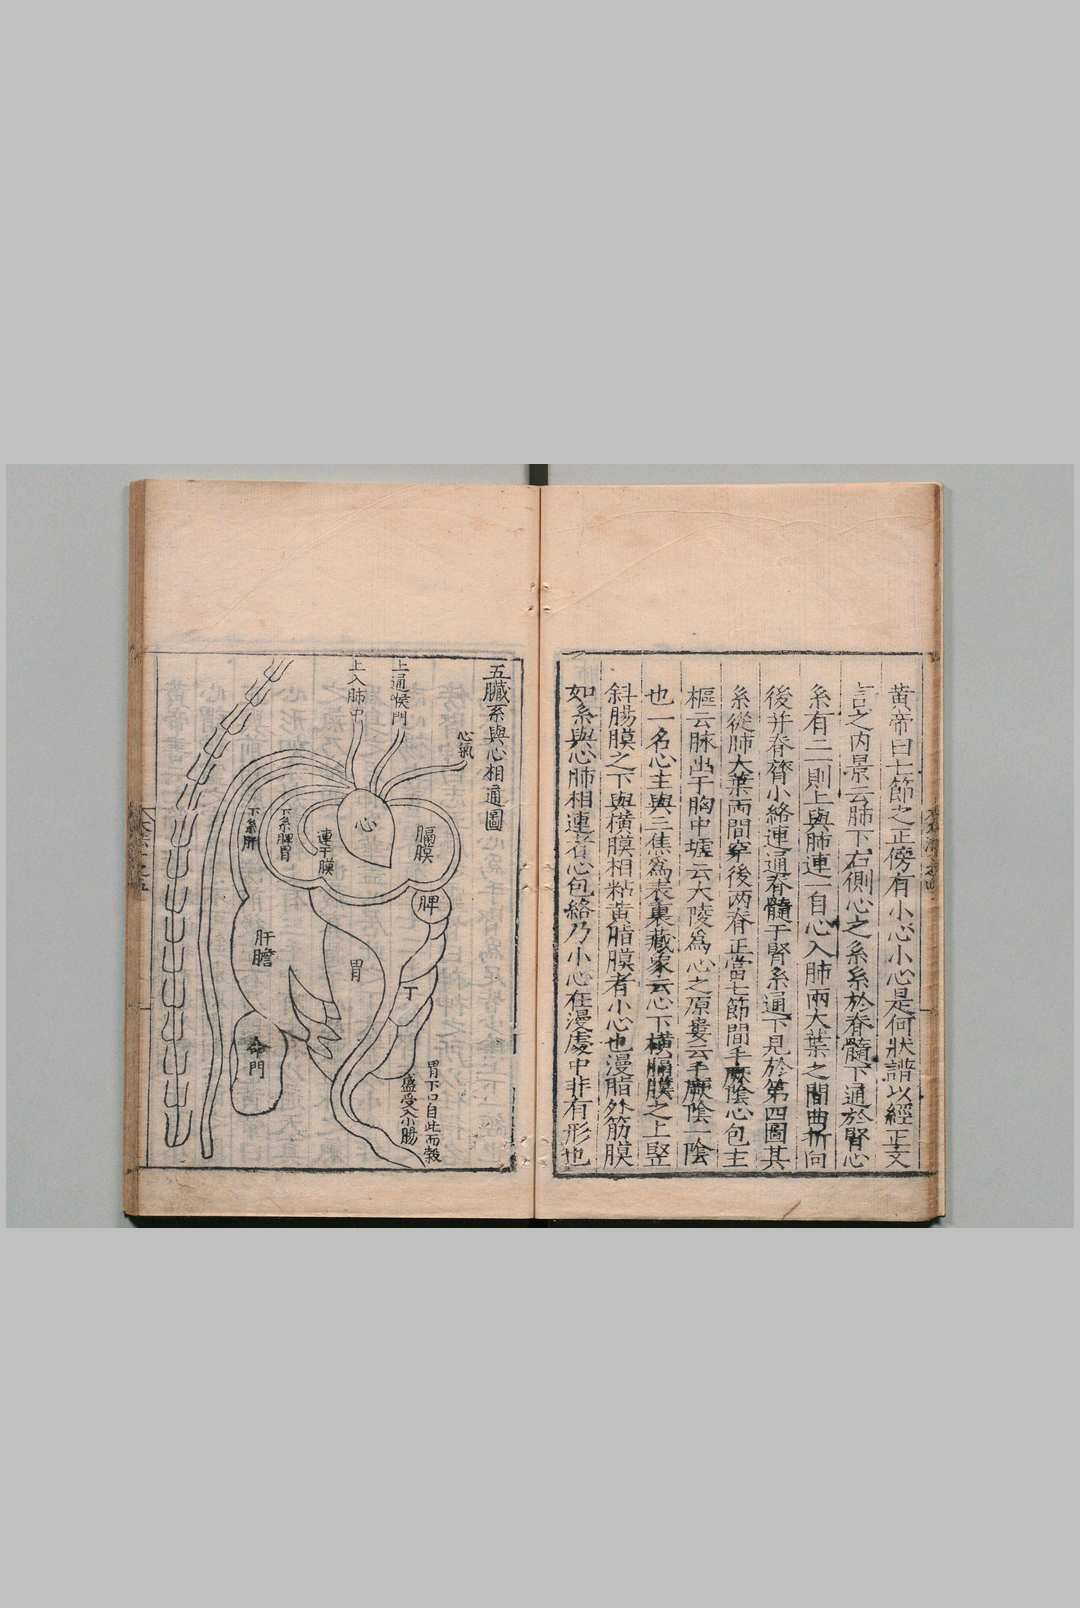 黃帝曰七節之正傍有小心小心是何狀譜以經正文
言之內景云肺下右側心之系系於脊髓下通於腎心
系有二一則上與肺連一自心入肺兩大葉之間曲折向
後并脊膂小絡連通脊髓于腎系通下見於第四圖其
系從肺大葉兩間穿後両脊正當七節間手厥陰心包主
樞云脉出于胸中墟云大陵為心之原蔞云手厥陰一陰
也一名心主與三焦為表裏藏象云心下橫膈膜之上竪
斜膓膜之下與橫膜相粘黃脂膜者小心也漫脂外筋膜
如系與心肺相連者心包絡乃小心在漫處中非有形也
五臟系與心相通圖
心氣
上通喉門
上入肺中
心
膈膜
連于膜
下系脾胃
下系肝
脾
胃
肝膽
命門
胃下口自此而穀
盛受入小膓